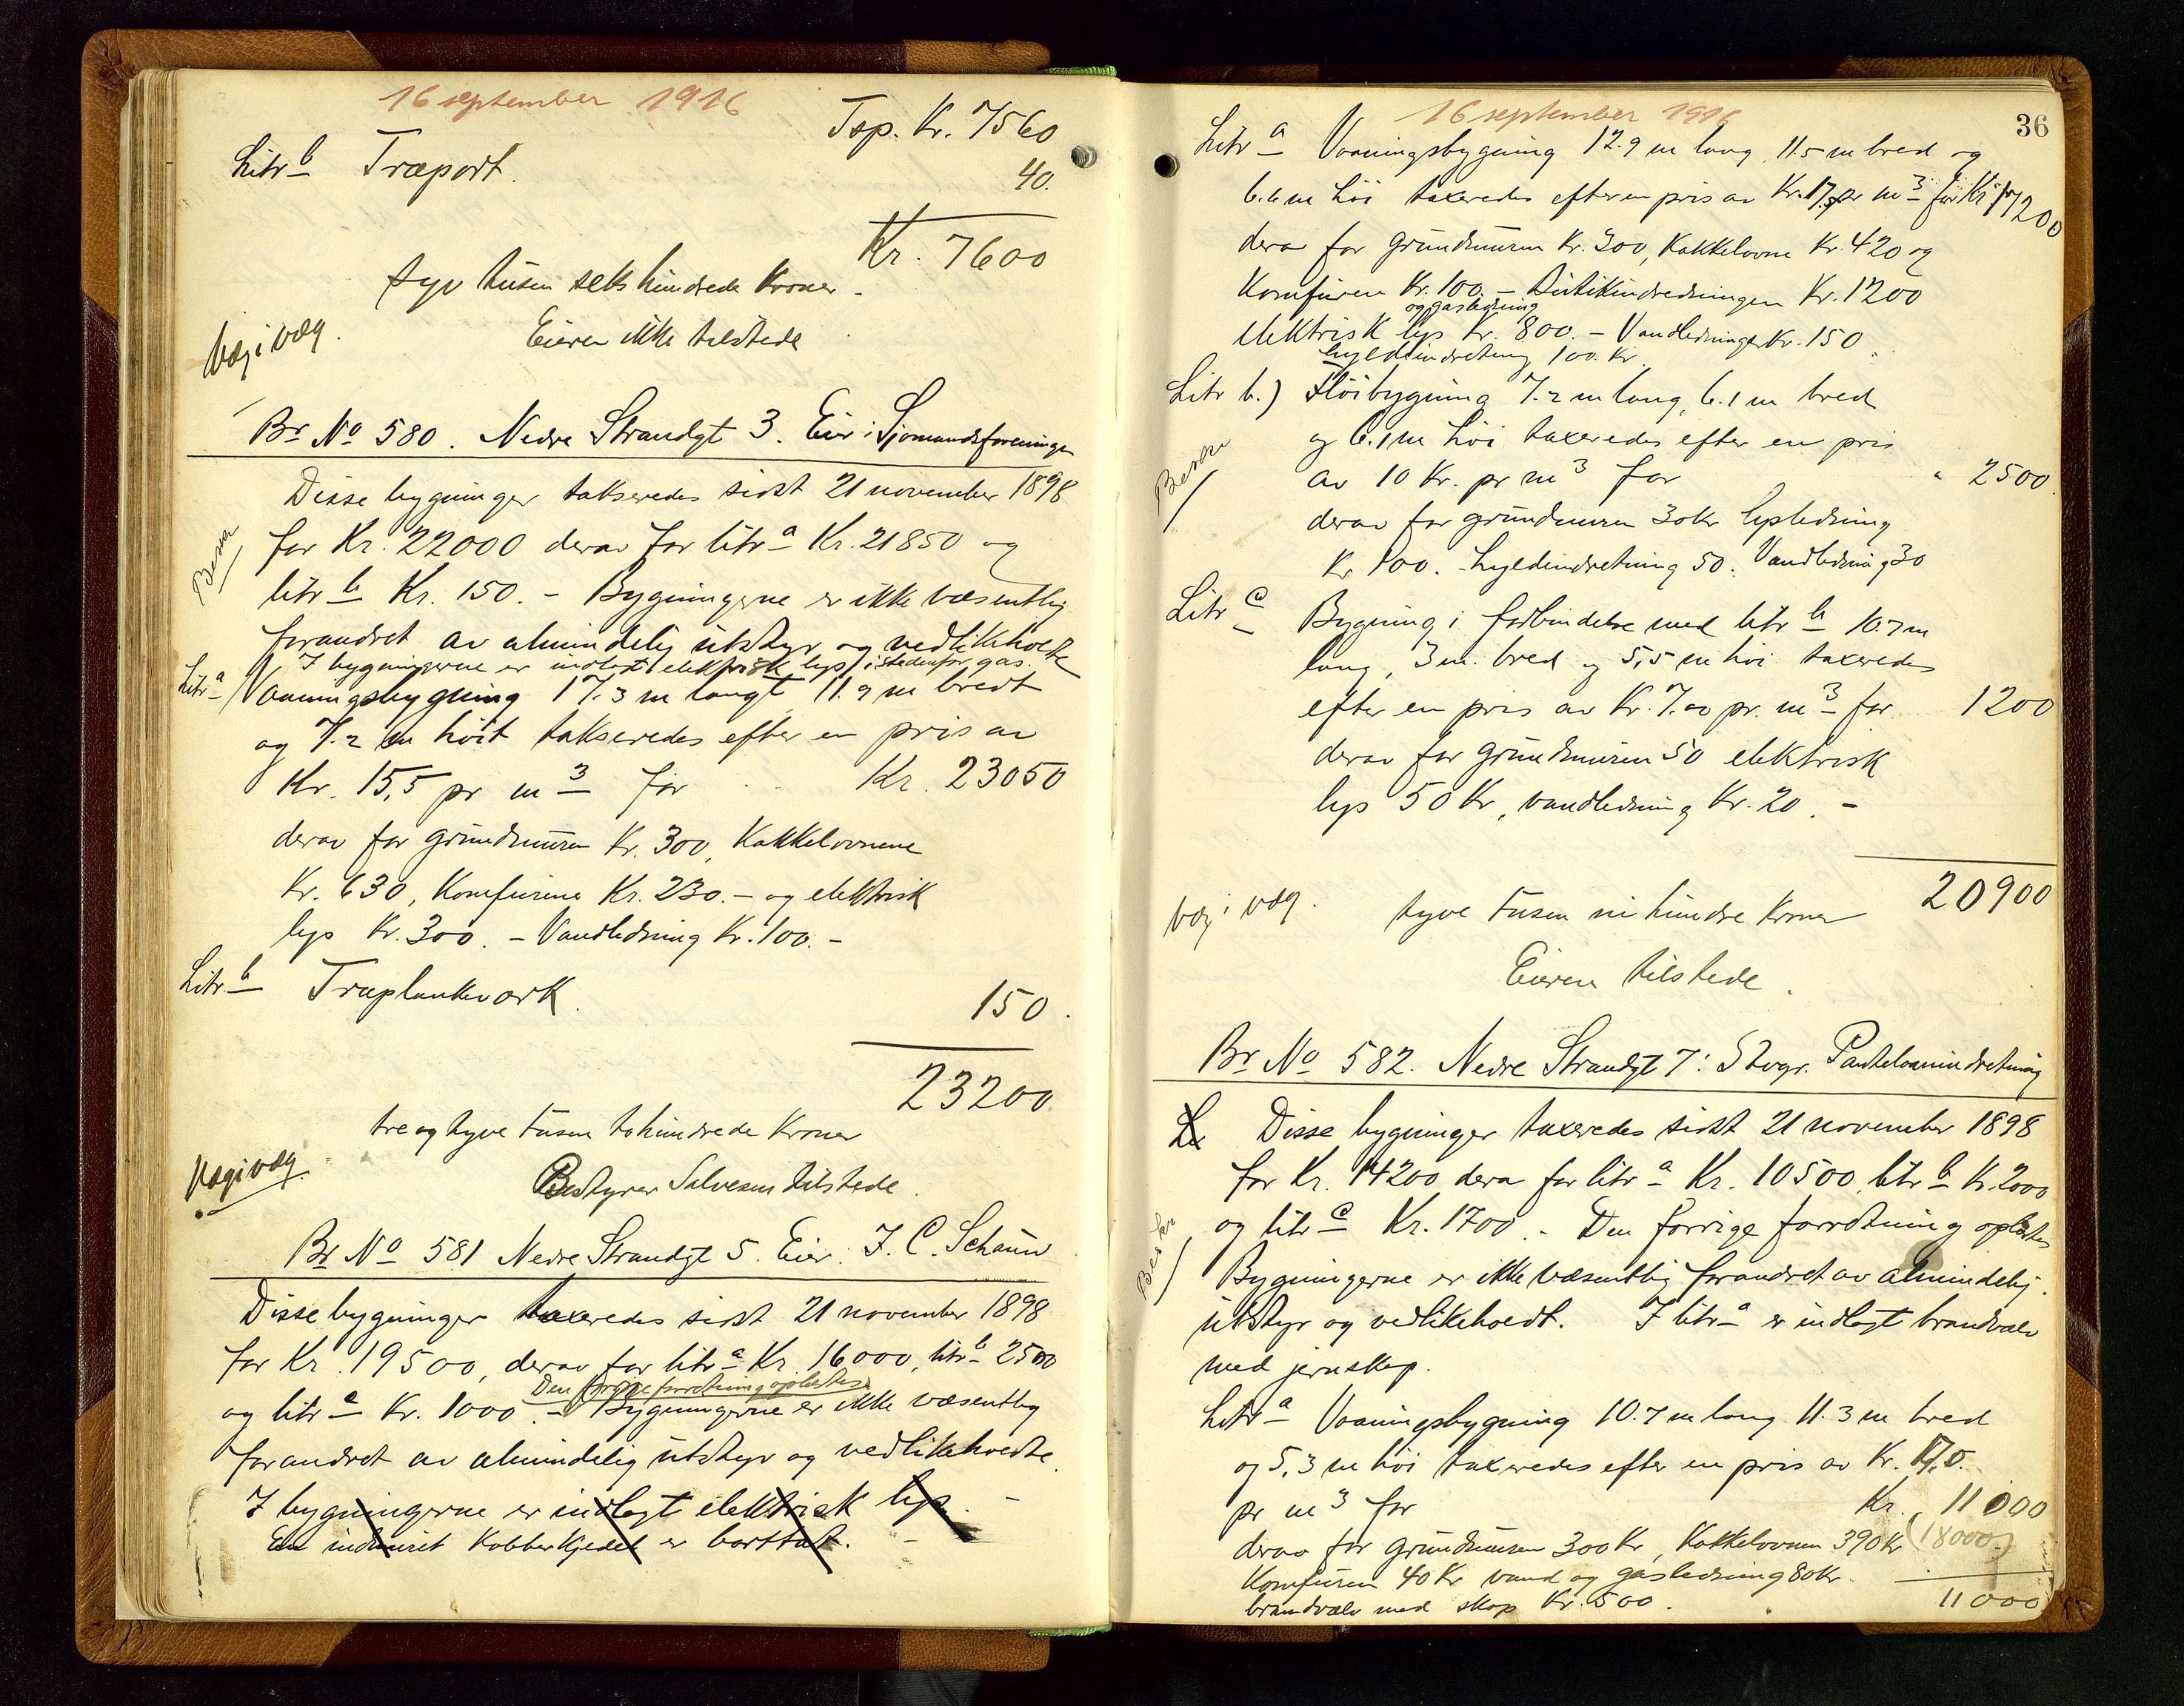 16 september 1916
Tsp. Kr. 7560
Litr b Træport. 40.
Kr. 7600
syv tusen seks hundrede Kroner -
Væg i væg. Eieren ikke tilstede
Br No 580. Nedre Strandgt 3. Eier: Sjømandsforeningen
Disse bygninger takseredes sidst 21 november 1898
Besva for Kr. 22000 derav for litr a Kr. 21850 og
litr b Kr. 150. - Bygningerne er ikke væsentlig
forandret av almindelig utstyr og vedlikeholdt
I bygningerne er indlagt elektrisk lys istedenfor gas.
Litr a Vaaningsbygning 17.3 m langt 11.9 m bredt
og 7.2 m høit takseredes efter en pris av
Kr. 15,5 pr m3 for Kr. 23050
derav for grundmuren Kr. 300, Kakkelovnene
Kr. 630, Komfurene Kr. 230.- og elektrisk
lys Kr. 300. - Vandledning Kr. 100. -
Litr b Træplankverk. 150.
23200
tre og tyve tusen tohundrede Kroner
Væg i væg Bestyrer Salvesen tilstede.
Br No 581 Nedre Strandgt 5. Eier: J. C. Schauw
Disse bygninger taxeredes sidst 21 november 1898
for Kr. 19500, derav for litr a Kr. 16000, litr b 2500
Den forrige forretning oplæstes
og litr c Kr. 1000. - Bygningerne er ikke væsentlig
forandret av almindelig utstyr og vedlikeholdte
I bygningerne er indlagt elektrisk lys. -
En indmuret Kobberkjedel er borttat. -
16 september 1916
36
Litr a Vaaningsbygning 12.9 m lang, 11.5 m bred og
6.6 m høi taxeredes efter en pris av Kr. 17,5 pr m3 for Kr 17200
derav for grundmuren Kr. 300, Kakkelovne Kr. 420 og
Komfuren Kr. 100. - Butikindredningen Kr. 1200
og gasledning
elektrisk lys Kr. 800. - Vandledninger Kr. 150
hyldeindretning 100. Kr.
Litr b.) Fløibygning 7.2 m lang, 6.1 m bred
og 6.1 m høi taxeredes efter en pris
av 10 Kr. pr m3 for " 2500
derav for grundmuren 30 Kr lysledning
Kr 100. - hyldeindretning 50. Vandledning 30
Litr c Bygning i forbindelse med litr b 10.7 m
lang, 3 m. bred og 5,5 m høi taxeredes
efter en pris av Kr. 7.00 pr. m3 for 1200
derav for grundmuren 50 elektrisk
lys 50 Kr, vandledning Kr. 20. -
20900
Væg i væg. tyve tusen ni hundre Kroner
Eieren tilstede.
Br No 582. Nedre Strandgt 7: Stvgr. Pantelaanindretning
Disse bygninger taxeredes sidst 21 november 1898
for Kr. 14200 derav for litr a Kr. 10500, litr b Kr. 2000
og litr c Kr. 1700. - Den forrige forretning oplæstes
Bygningerne er ikke væsentlig forandret av almindelig
utstyr og vedlikeholdt. I litr a er indlagt brandvælv
med jernskap.
Litr a Vaaningsbygning 10.7 m lang 11.3 m bred
og 5,3 m høi taxeredes efter en pris av Kr. 17,0.
pr m3 for Kr. 11000
derav for grundmuren 300 Kr, Kakkelovnen 390 Kr (18000.)
Komfuren 40 Kr vand og gasledning 80 Kr.
brandvælv med skap Kr. 500. 11000